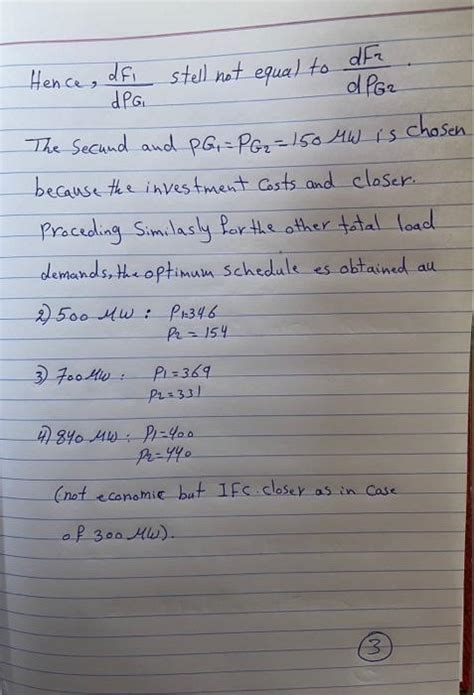 Hence, dF1/dPG1 stell not equal to dF2/dPG2.
The Secund and PG1=PG2=150 MW is chosen
because the investment Costs and closer.
Proceding Similasly for the other total load
demands, the optimum schedule es obtained au
2) 500 MW : P1=346
P2 = 154
3) 700 MW : P1=369
P2=331
4) 840 MW : P1=400
P2=440
(not economic but IFC closer as in Case
of 300 MW).
3